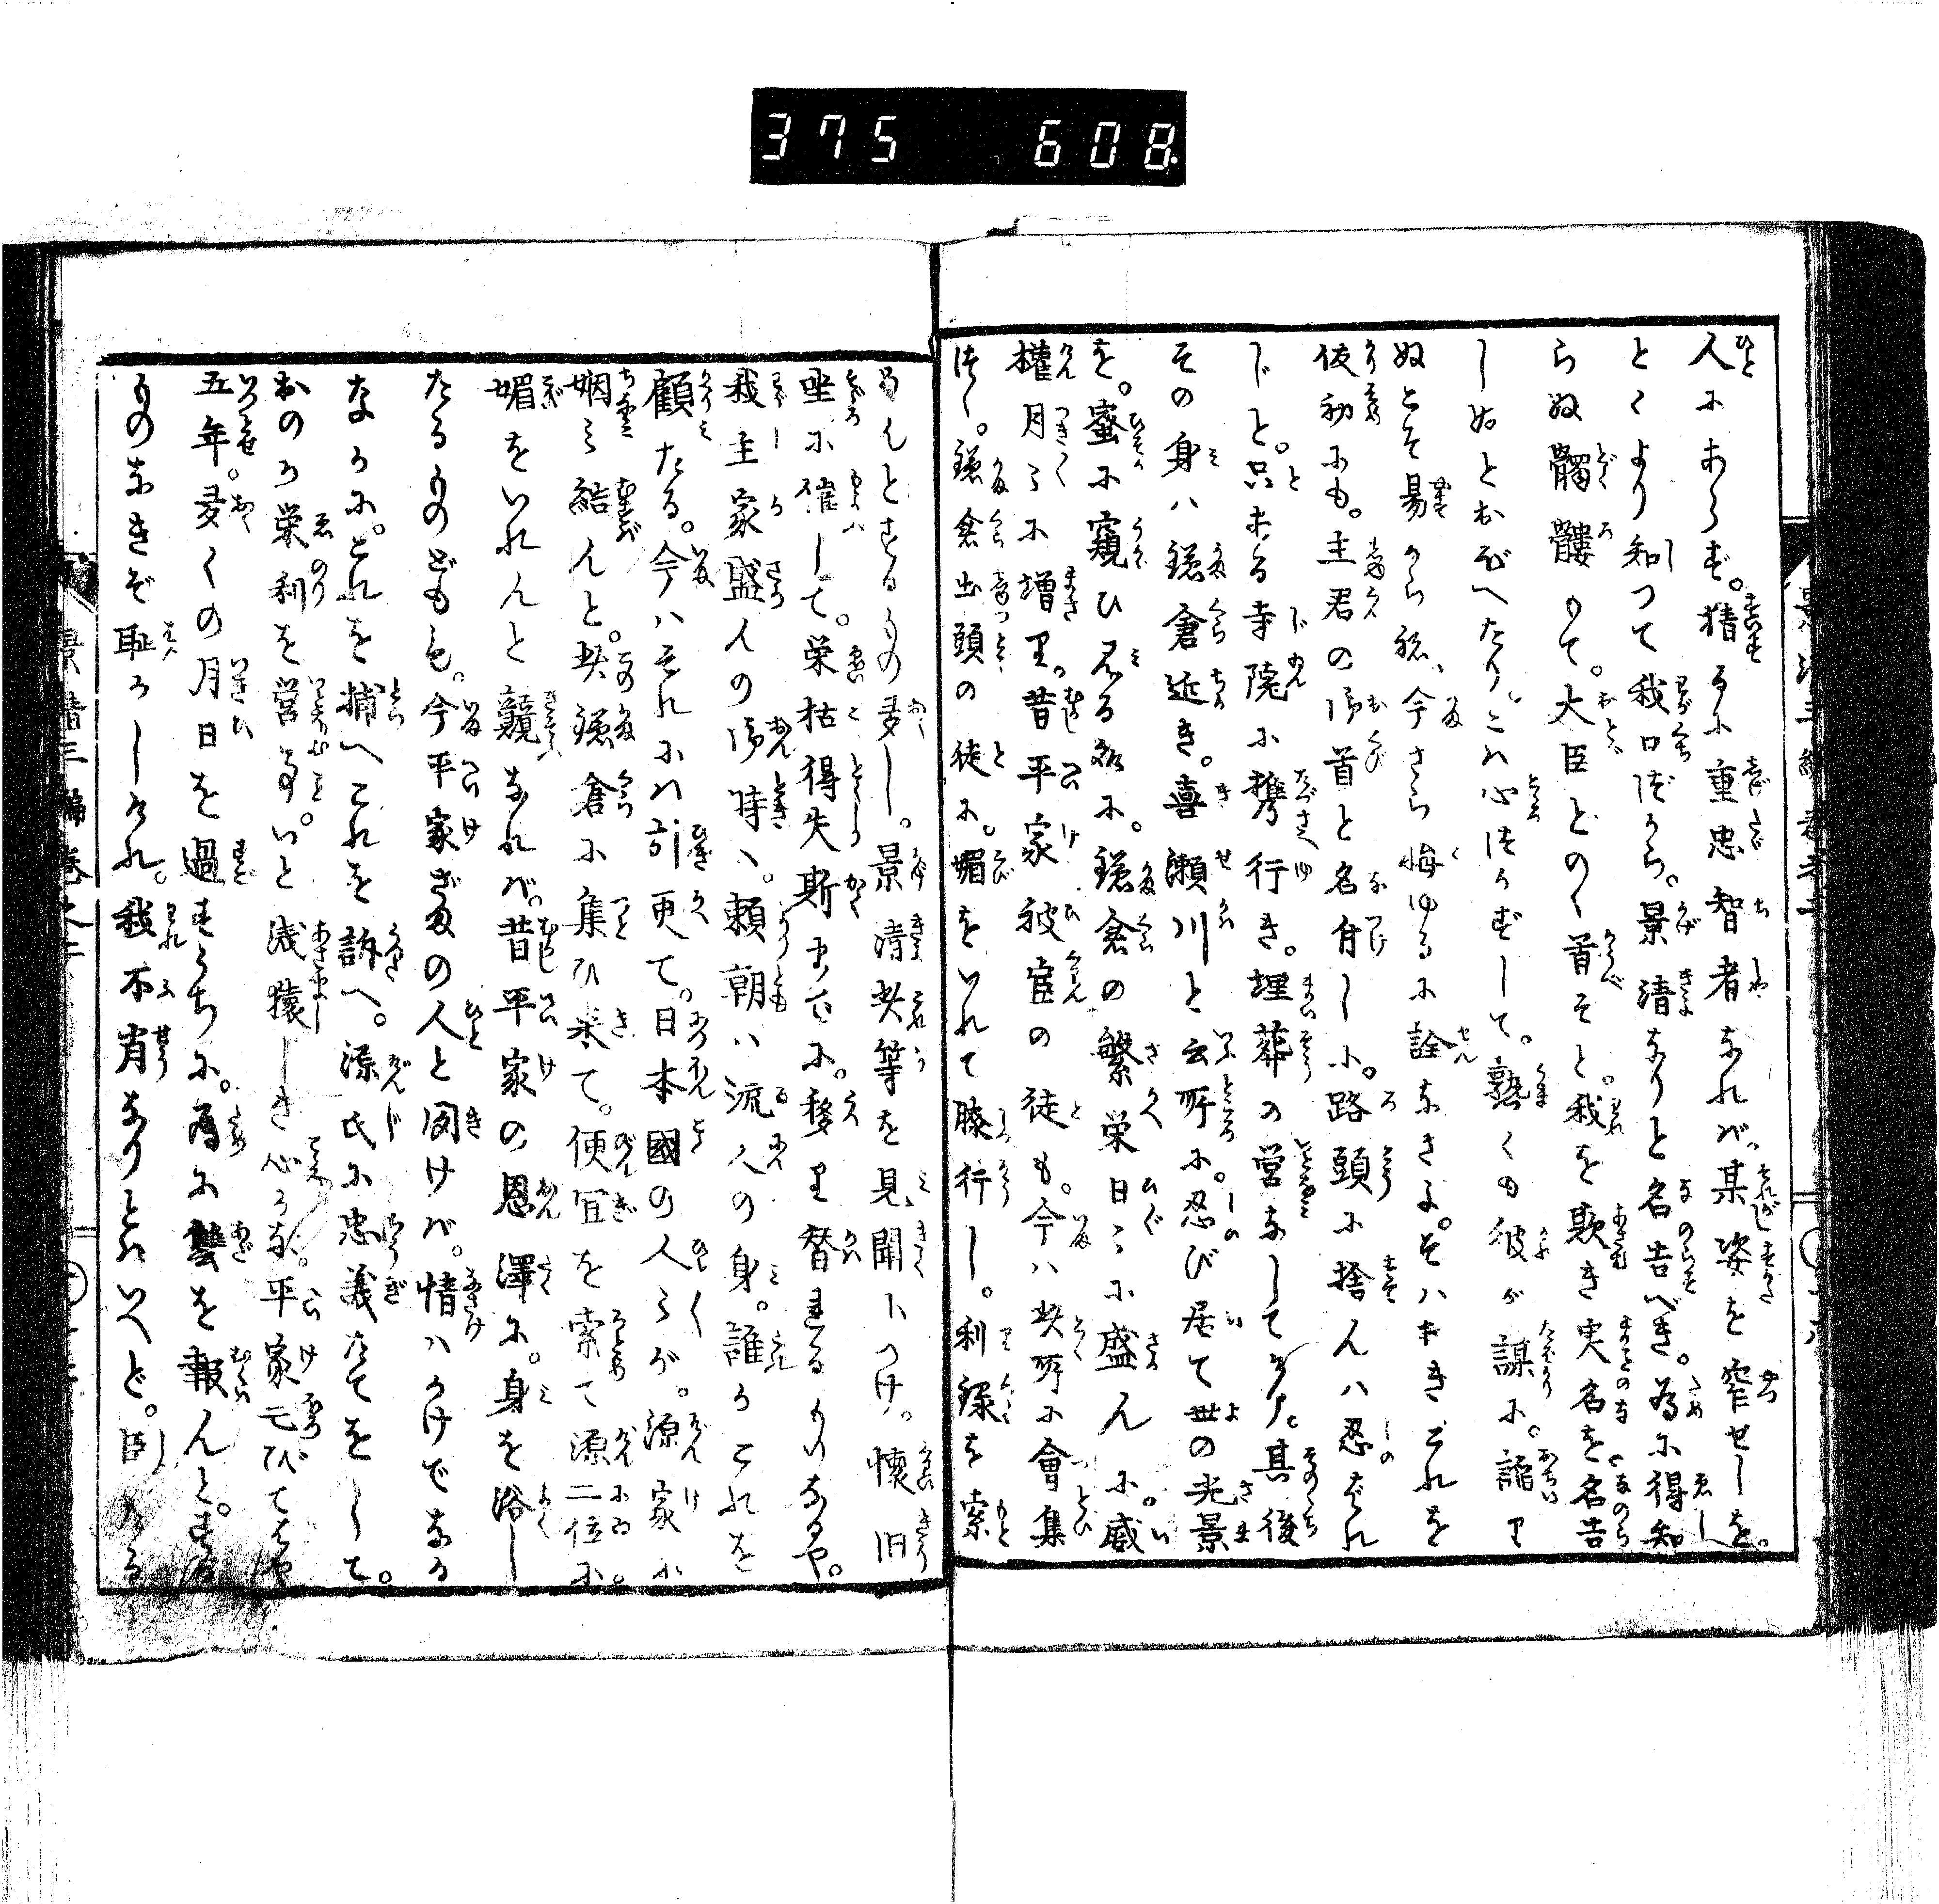 375 608
人にあらず。猜るに重忠智者なれば。某姿を窄せしを。
とくより知つて我口づから。景清なりと名告べき。為に得知
らぬ髑髏もて。大臣とのゝ首そと。我を欺き実名を名告
しぬとおぼへたり。こハ心づかずして。熟くも彼が謀に。謟り
ぬとそ易からね、今さら悔ゆるに詮なきよ。そハおきこれを
仮初にも。主君の御首と名付しに。路頭に捨んハ忍ばれ
じと。只ある寺院に携行き。埋葬の営なして
その身ハ鎌倉近き。喜瀬川と云所に。忍び居て世の光景
を。蜜に窺ひ見る に。鎌倉の繁栄日ゝに盛んに。威
権月ゝに増り。昔平家被官の徒も。今ハ此所に會集
づゝ。鎌倉出頭の徒に。媚をいれて膝行し。利録を索
めんとするもの多し。景清此等を見聞につけ。懐旧
坐に催して。栄枯得失斯までに。移り替るものなるや。
我主家盛んの御時ハ。頼朝ハ流人の身。誰かこれを
顧たる。今ハそれに引更て。日本國の人々が。源家に
姻ミ結んと。此鎌倉に集ひ来て。便宜を索て源二位に。
媚をいれんと競なれば。昔平家の恩澤に。身を浴し
たるものどもも。今平家ざまの人と聞けば。情ハかけでなか
なかに。これを捕へこれを訴へ。源氏に忠義たてをして。
おのか栄利を営事。いと浅猿しき心かな。平家亡びてはや
五年。多くの月日を過すうちに。為に讐を報んと。する
ものなきぞ耻かしけれ。我不肖なりとハいへど。臣たる
景清三編巻之二